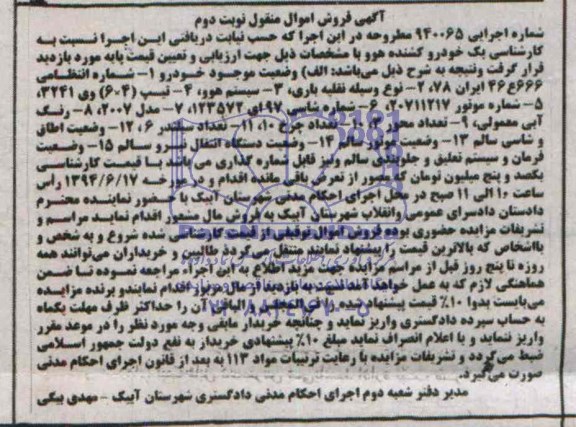 آگهی فروش اموال منقول نوبت دوم
شماره اجرایی ۹۴۰۰۶۵ مطروحه در این اجرا که حسب نیابت دریافتی این اجرا نسبت به
کارشناسی یک خودرو کشنده هوو با مشخصات ذیل جهت ارزیابی و تعیین قیمت پایه مورد بازدید
قرار گرفت ونتیجه به شرح ذیل می‌باشد: الف) وضعیت موجود خودرو ۱- شماره انتظامی
۶۶۶ع۴۶ ایران ۷۸، ۲- نوع وسیله نقلیه باری، ۳- سیستم هوو، ۴- تیپ (۴×۶) وی ۳۲۴۱،
۵- شماره موتور ۲۰۷۱۱۲۱۷، ۶- شماره شاسی ۹۷ای ۱۲۳۵۷۲، ۷- مدل ۲۰۰۷، ۸- رنگ
آبی معمولی، ۹- تعداد محور ۱۰- تعداد چرخ ۱۰، ۱۱- تعداد سیلندر ۶، ۱۲- وضعیت اطاق
و شاسی سالم ۱۳- وضعیت موتور سالم ۱۴- وضعیت دستگاه انتقال نیرو سالم ۱۵- وضعیت
فرمان و سیستم تعلیق و جلوبندی سالم ونیز قابل شماره گذاری می باشد با قیمت کارشناسی
یکصد و پنج میلیون تومان که مصور از تعرض باقی مانده اقدام و در مورخه ۱۳۹۴/۶/۱۷ رأس
ساعت ۱۰ الی ۱۱ صبح در محل اجرای احکام مدنی شهرستان آبیک با حضور نماینده محترم
دادستان دادسرای عمومی وانقلاب شهرستان آبیک به فروش مال مشعور اقدام نماید مراسم و
تشریفات مزایده حضوری بوده فروش اموال توقیفی از قیمت کارشناسی شده شروع و به شخص و
یااشخاص که بالاترین قیمت را پیشنهاد نمایند منتقل می‌گردد طالبین و خریداران می‌توانند همه
روزه تا پنج روز قبل از مراسم مزایده جهت مزید اطلاع به این اجراء مراجعه نموده تا ضمن
هماهنگی لازم که به عمل خواهد آمد نسبت به بازدید از مال مورد نیاز اقدام نمایندو برنده مزایده
می‌بایست بدوا ۱۰٪ قیمت پیشنهاد شده را فی‌المجلس و الباقی آن را حداکثر ظرف مهلت یکماه
به حساب سپرده دادگستری واریز نماید و چنانچه خریدار مابقی وجه مورد نظر را در موعد مقرر
واریز ننماید و یا اعلام انصراف نماید مبلغ ۱۰٪ پیشنهادی خریدار به نفع دولت جمهور اسلامی
ضبط می‌گردد و تشریفات مزایده با رعایت ترتیبات مواد ۱۱۳ به بعد از قانون اجرای احکام مدنی
صورت می‌گیرد.
مدیر دفتر شعبه دوم اجرای احکام مدنی دادگستری شهرستان آبیک - مهدی بیگی